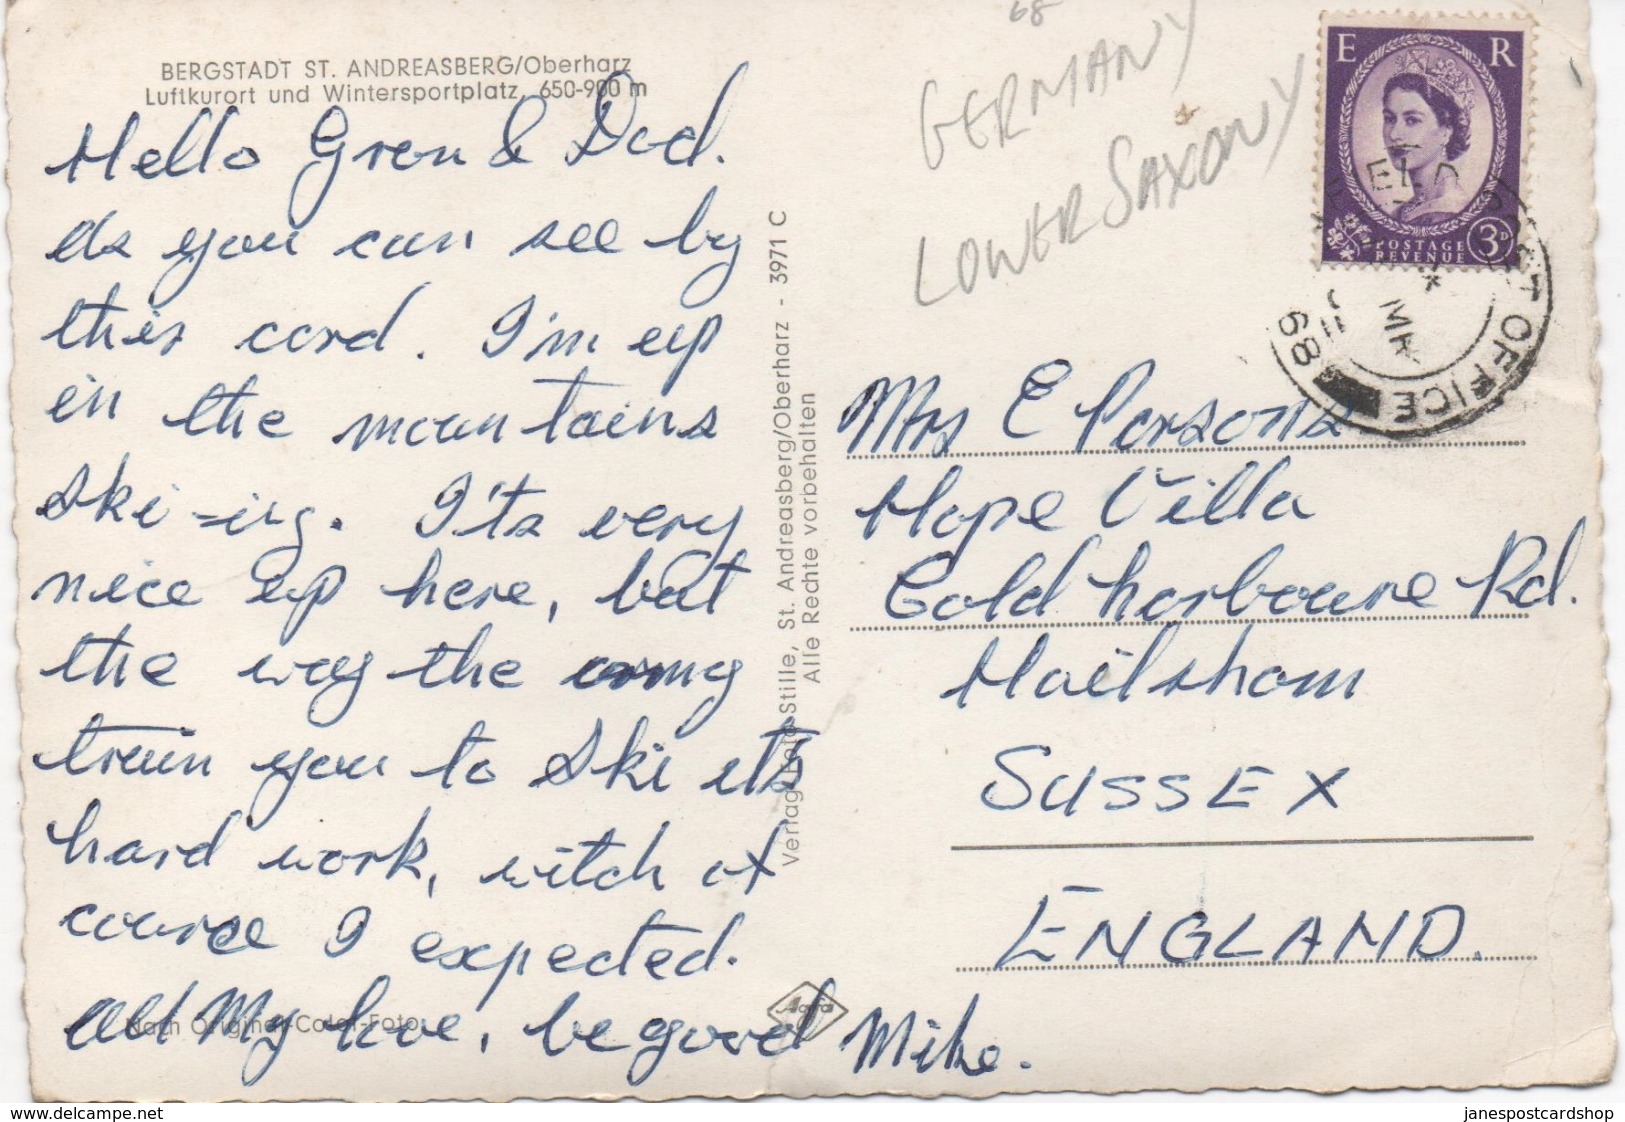 BERGSTADT ST. ANDREASBERG/Oberharz
Luftkurort und Wintersportplatz, 650-900 m
Hello Gran & Dad.
As you can see by
this card. I'm up
in the mountains
Ski-ing. It's very
nice up here, but
the way the army
train you to Ski its
hard work, witch of
course I expected.
All My love, be good Mike.
Nach Original-Color-Foto
Verlag Foto-Stille, St. Andreasberg/Oberharz - 3971 C
Alle Rechte vorbehalten
Agfa
68
GERMANY
LOWER SAXONY
E R
POSTAGE
REVENUE
3D
POST OFFICE
MR
68
Mrs E Parsons
Hope Villa
Coldharboure Rd.
Hailsham
SUSSEX
ENGLAND.
www.delcampe.net
janespostcardshop